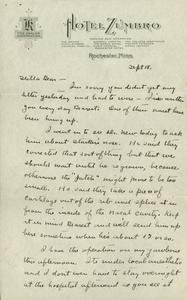 HOTEL ZUMBRO
Rochester, Minn.
Sept 18.
Della Dear—
I'm sorry you didn't get any
letter yesterday and had to wire. I
you every day Dearest. One of them must have
been hung up.
I went in to see Dr. New today to ask
him about nose. He said they
corrected that sort of thing but that we
should wait until he is grown because
otherwise the "patch" might prove to be too
small. He said they take a piece of
cartilage out of the rib and splice it in
from the inside of the nasal cavity. Keep
it in mind Dearest and we'll send him up
here sometime when he's about 17 or so.
I have the operation on my
this afternoon. It is under local anesthetic
and I don't even have to stay overnight
at the hospital afterward so you see it